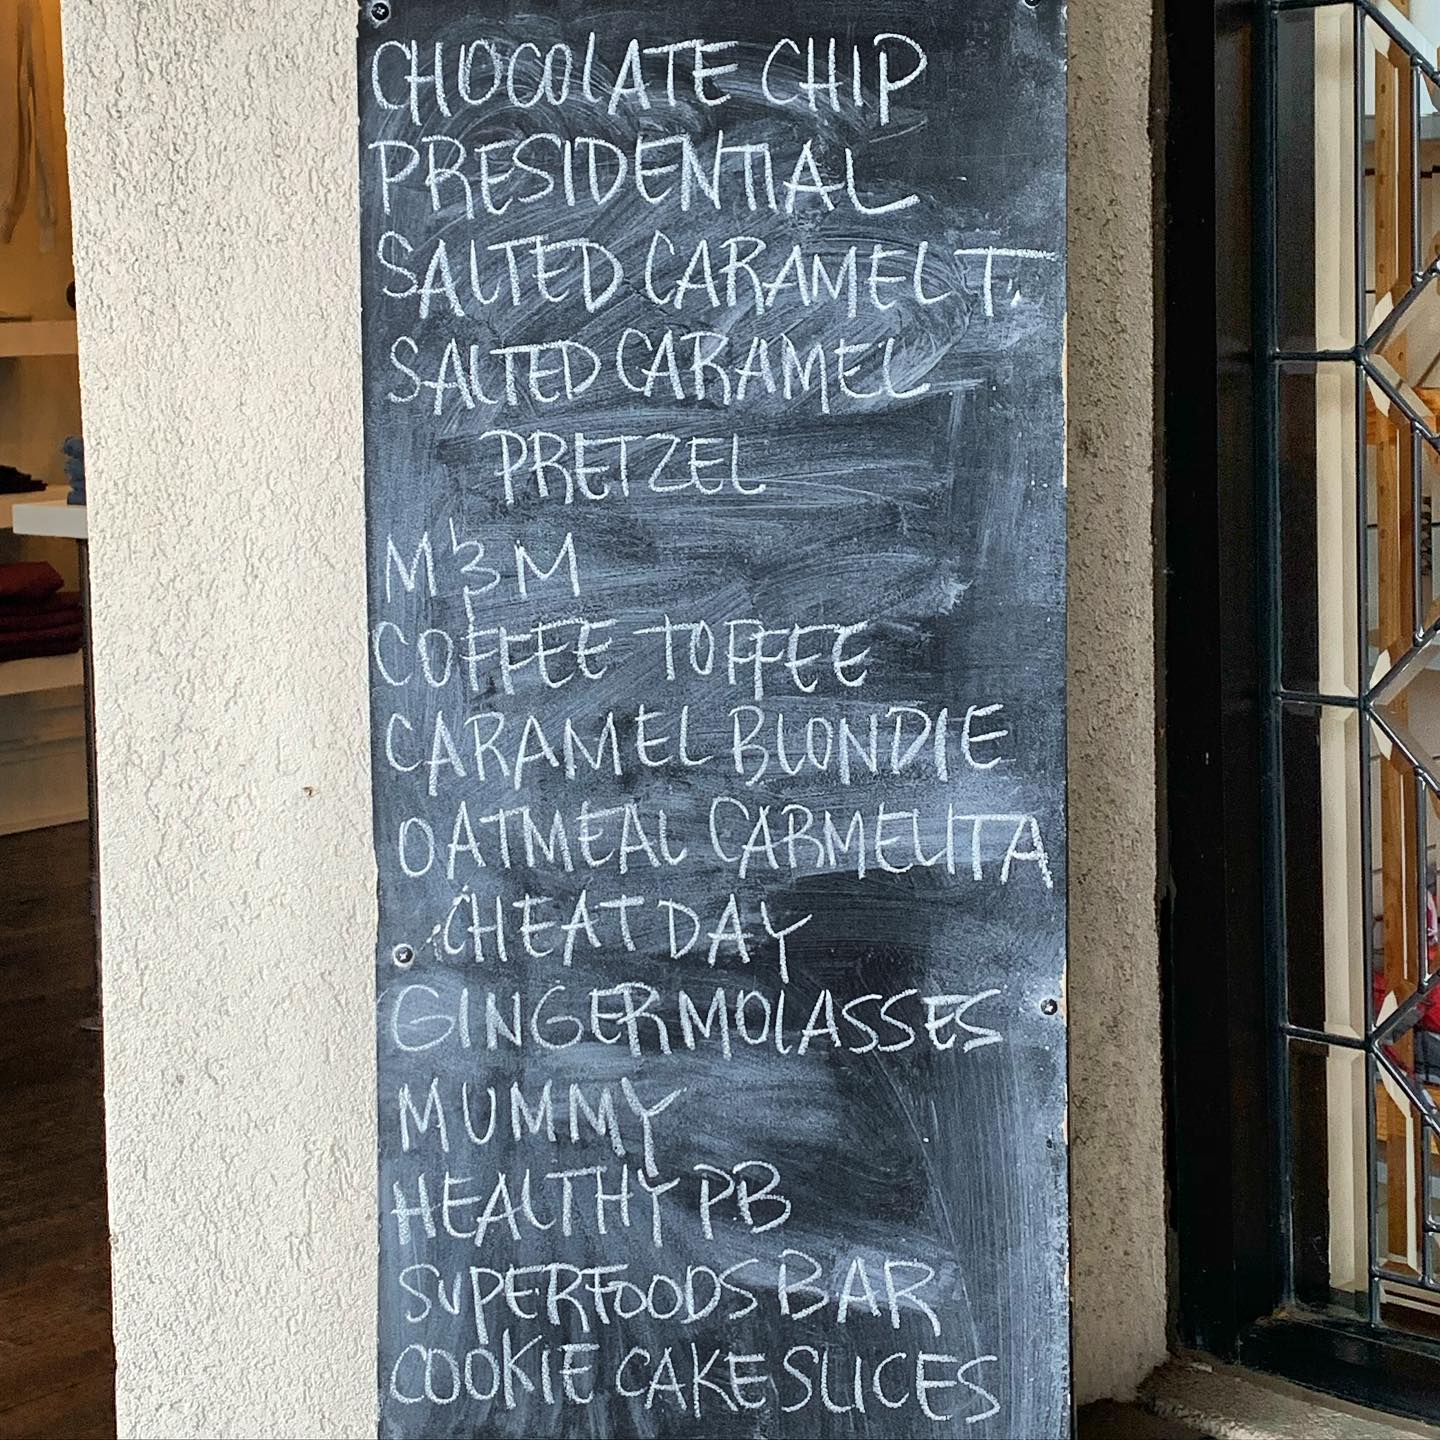 CHOCOLATE CHIP
PRESIDENTIAL
SALTED CARAMEL T.
SALTED CARAMEL
PRETZEL
M & M
COFFEE TOFFEE
CARAMEL BLONDIE
OATMEAL CARMELITA
CHEAT DAY
GINGER MOLASSES
MUMMY
HEALTHY PB
SUPERFOODS BAR
COOKIE CAKE SLICES